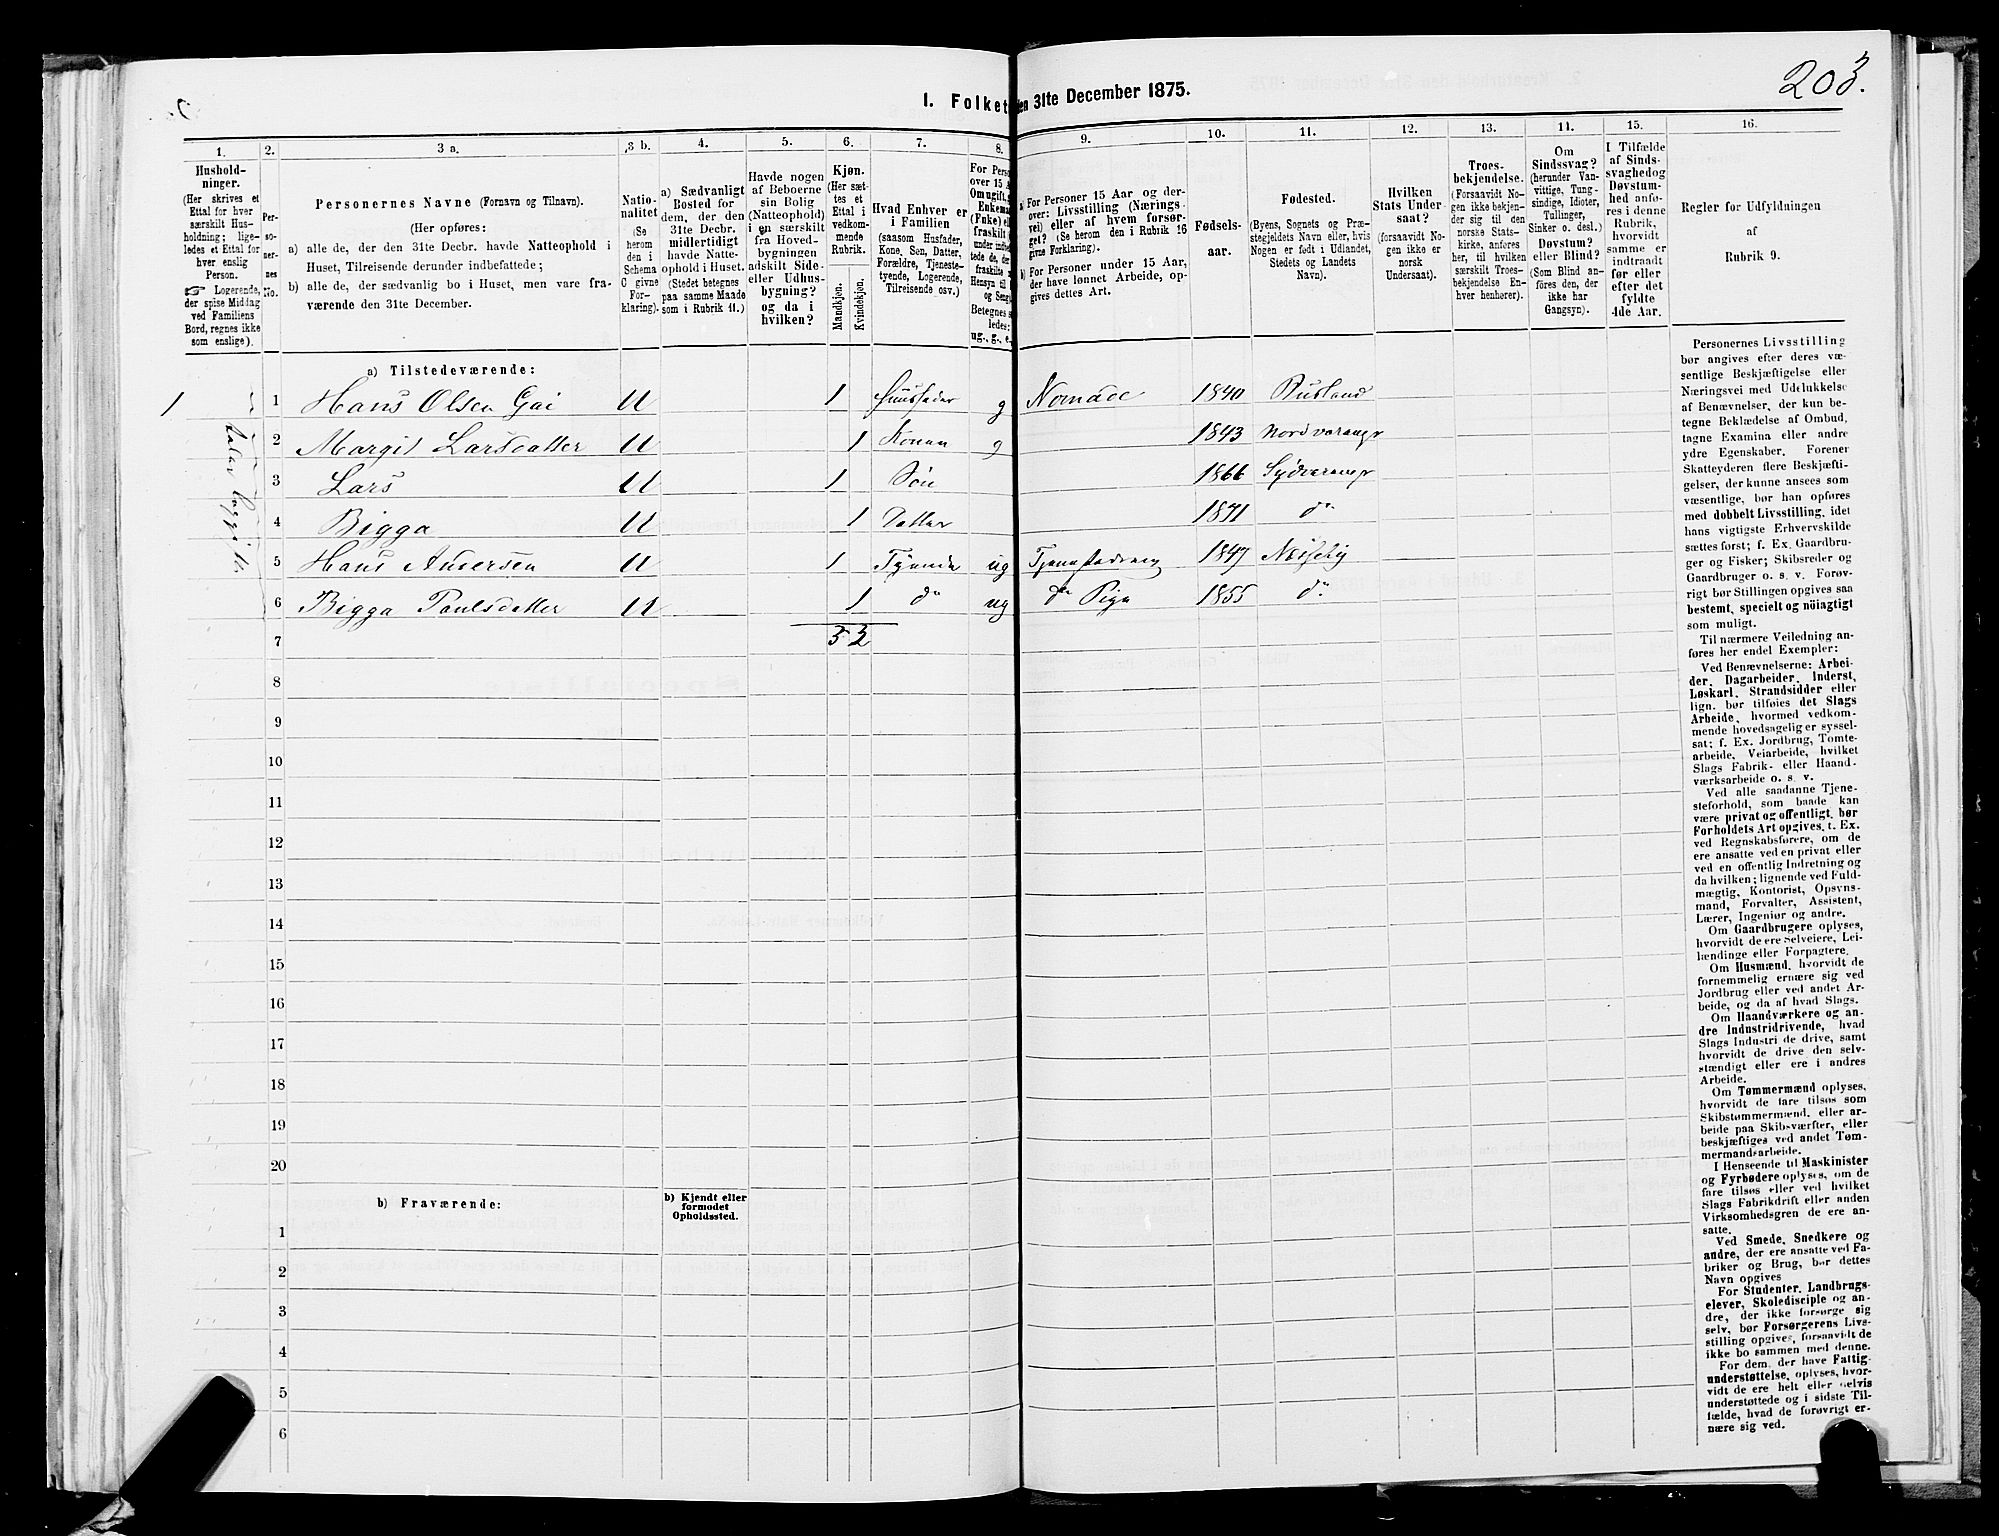 203.
I. Folket
den 31te December 1875.
1.
2.
3 a.
3 b.
4.
5.
6.
7.
8.
9.
10.
11.
12.
13.
14.
15.
16.
Husholdninger.
(Her skrives et
Ettal for hver
særskilt Husholdning; ligeledes et Ettal for
hver enslig
Person.
☞ Logerende,
der spise Middag
ved Familiens
Bord, regnes ikke
som enslige).
Personernes
No.
Personernes Navne (Fornavn og Tilnavn).
(Her opføres:
a) alle de, der den 31te Decbr. havde Natteophold i
Huset, Tilreisende derunder indbefattede;
b) alle de, der sædvanlig bo i Huset, men vare fraværende den 31te December.
Nationalitet
(Se
herom
den i
Schema
C givne
Forklaring).
a) Sædvanligt
Bosted for
dem, der den
31te Decbr.
midlertidigt
havde Natteophold i Huset.
(Stedet betegnes
paa samme Maade
som i Rubrik 11.)
Havde nogen
af Beboerne
sin Bolig
(Natteophold)
i en særskilt
fra Hovedbygningen
adskilt Side-
eller Udhusbygning?
og da i
hvilken?
Kjøn.
(Her sættes et
Ettal i
vedkommende
Rubrik.
Mandkjøn.
Kvindekjøn.
Hvad Enhver er
i Familien
(saasom Husfader,
Kone, Søn, Datter,
Forældre, Tjenestetyende, Logerende,
Tilreisende osv.)
For Perso
over 15 A
Om ugift,
Enkema
(Fnke) el
fraskilt (
under indb
tede de, d
fraskilte
Hensyn til
og Seng
Betegnes s
ledes:
ug., g., e.
a) For Personer 15 Aar og derover: Livsstilling (Næringsvei) eller af hvem forsørget? (Se herom den i Rubrik 16
givne Forklaring).
b) For Personer under 15 Aar,
der have lønnet Arbeide, opgives dettes Art.
Fødselsaar.
Fødested.
(Byens, Sognets og Præstegjeldets Navn eller, hvis
Nogen er født i Udlandet,
Stedets og Landets
Navn).
Hvilken
Stats Undersaat?
(forsaavidt Nogen ikke er
norsk
Undersaat).
Troesbekjendelse.
(Forsaavidt Nogen ikke bekjender sig til den
norske Statskirke, anføres
her, til hvilken
særskilt Troesbekjendelse Enhver henhører).
Om
Sindssvag?
(herunder Vanvittige, Tungsindige, Idioter,
Tullinger,
Sinker o. desl.)
Døvstum?
eller Blind?
(Som Blind anføres den, der
ikke har
Gangsyn).
I Tilfælde
af Sindssvaghed og
Døvstumhed anføres i denne
Rubrik,
hvorvidt
samme er
indtraadt
før eller
efter det
fyldte
4de Aar.
Regler for Udfyldningen
af
Rubrik 9.
a) Tilstedeværende:
1 1 Hans Olsen Gai U 1 Huusfader g Nomade 1840 Rusland
2 Margit Larsdatter U 1 Konen g 1843 Nordvaranger
3 Lars U 1 Søn 1866 Sydvaranger
4 Bigga U 1 Datter 1871 do
5 Hans Andersen U 1 Tyende ug Tjenestedreng 1847 Næseby
6 Bigga Paulsdatter U 1 do ug do Pige 1855 do
7 3 3
8
9
10
11
12
13
14
15
16
17
18
19
20
b) Fraværende:
b) Kjendt eller
formodet
Opholdssted.
1
2
3
4
5
6
Personernes Livsstilling
bør angives efter deres væsentlige Beskjæftigelse eller
Næringsvei med Udelukkelse
af Benævnelser, der kun betegne Beklædelse af Ombud,
tagne Examina eller andre
ydre Egenskaber. Forener
Skatteyderen flere Beskjæftigelser, der kunne ansees som
væsentlige, bør han opføres
med dobbelt Livsstilling, idet
hans vigtigste Erhvervskilde
sættes først; f. Ex. Gaardbruger og Fisker; Skibsreder og
Gaardbruger o. s. v. Forøvrigt bør Stillingen opgives saa
bestemt, specielt og nöiagtigt
som muligt.
Til nærmere Veiledning anføres her endel Exempler:
Ved Benævnelserne: Arbeider, Dagarbeider, Inderst,
Løskarl, Strandsidder eller
lign. bør tilføies det Slags
Arbeide, hvormed vedkommende hovedsagelig er sysselsat; f. Ex. Jordbrug, Tomtearbeide, Veiarbeide, hvilket
Slags Fabrik- eller Haandværksarbeide o. s. v.
Ved alle saadanne Tjenesteforhold, som baade kan
være privat og offentligt, bør
Forholdets Art opgives, t. Ex.
ved Regnskabsførere, om de
ere ansatte ved en privat eller
ved en offentlig Indretning og
da hvilken; lignende ved Fuldmægtig, Kontorist, Opsynsmand, Forvalter, Assistent,
Lærer, Ingeniør og andre.
Om Gaardbrugere oplyses,
hvorvidt de ere Selveiere, Leilændinge eller Forpagtere.
Om Husmænd, hvorvidt de
fornemmelig ernære sig ved
Jordbrug eller ved andet Arbeide, og da af hvad Slags.
Om Haandværkere og andre Industridrivende, hvad
Slags Industri de drive, samt
hvorvidt de drive den selvstændigt eller ere i andres
Arbeide.
Om Tømmermænd oplyses,
hvorvidt de fare tilsøs som
Skibstømmermænd, eller arbeide paa Skibsværfter, eller
beskjæftiges ved andet Tømmermandsarbeide.
I Henseende til Maskinister
og Fyrbødere oplyses, om de
fare tilsøs eller ved hvilket
Slags Fabrikdrift eller anden
Virksomhedsgren de ere ansatte.
Ved Smede, Snedkere og
andre, der ere ansatte ved Fabriker og Brug, bør dettes
Navn opgives
For Studenter, Landbrugselever, Skoledisciple og andre, der ikke forsørge sig
selv, bør Forsørgerens Livsstilling opgives, forsaavidt de
ikke bo sammen med denne.
For dem, der have Fattigunderstøttelse, oplyses, hvorvidt de ere helt eller delvis
understøttede og i sidste Tilfælde, hvad de forøvrigt ernære sig ved.